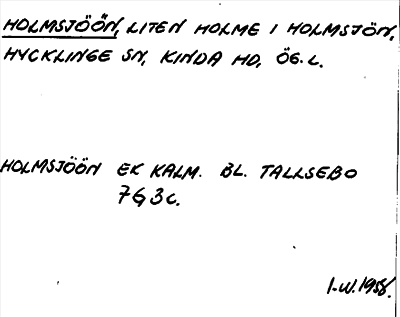 HOLMSJÖÖN, LITEN HOLME I HOLMSJÖN,
HYCKLINGE SN, KINDA HD, ÖG.L.
HOLMSJÖÖN EK KALM. BL. TALLSEBO
7G3c.
I-W.1958.